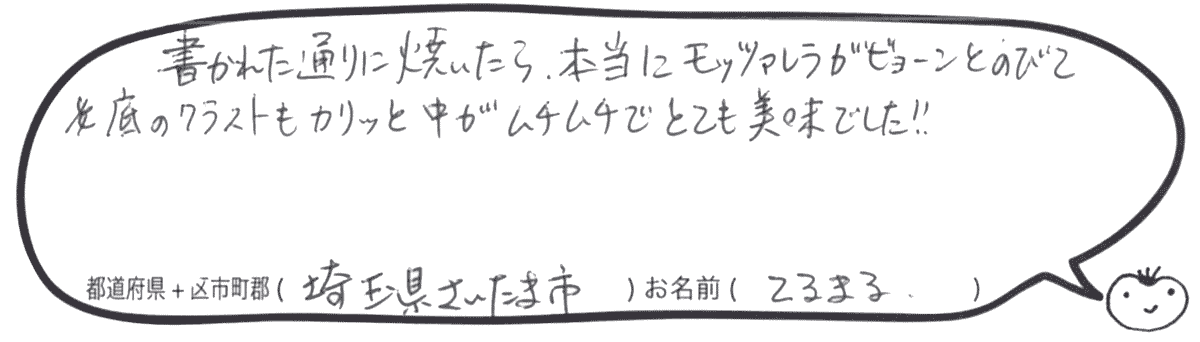 書かれた通りに焼いたら、本当にモッツァレラがビョーンとのびて
底のクラストもカリッと中がムチムチでとても美味でした!!
都道府県+区市町郡(埼玉県さいたま市)お名前(てるまる.)